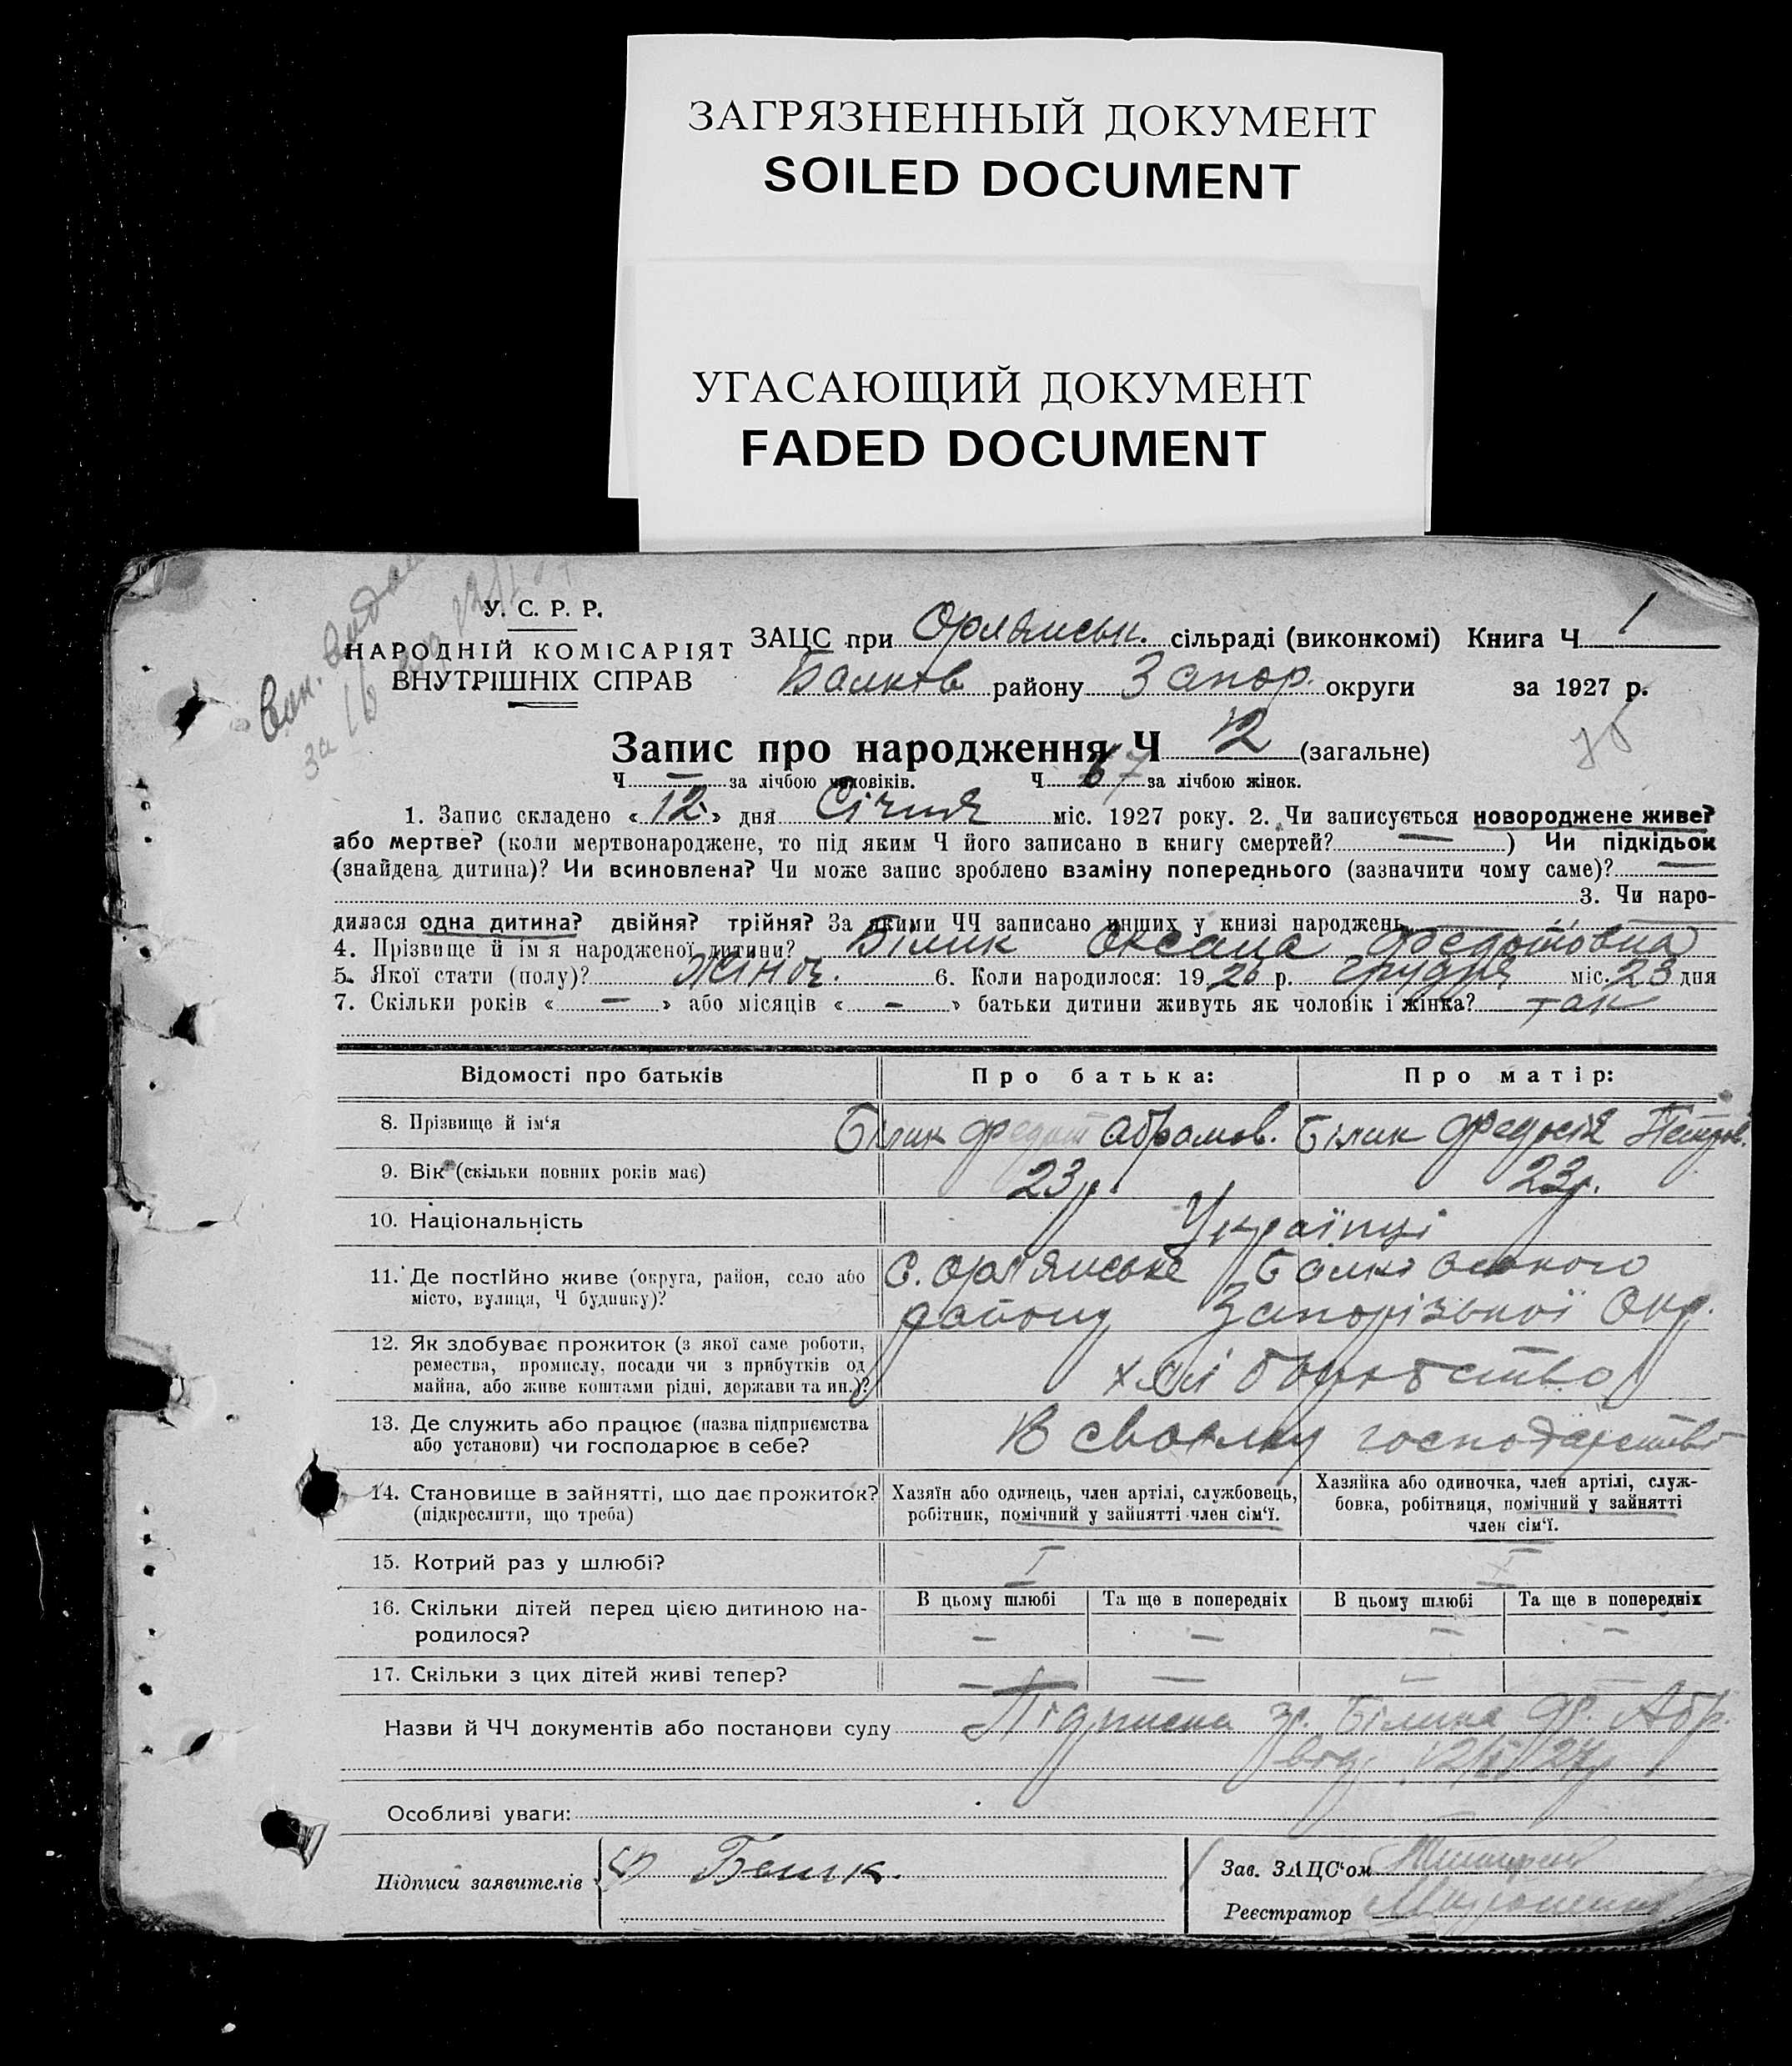 ЗАГРЯЗНЕННЫЙ ДОКУМЕНТ
SOILED DOCUMENT
УГАСАЮЩИЙ ДОКУМЕНТ
FADED DOCUMENT
Вик. видан
за 16
У. С. Р. Р.
НАРОДНІЙ КОМІСАРІЯТ
ВНУТРІШНІХ СПРАВ
ЗАЦС при Орлянськ. сільраді (виконкомі) Книга Ч 1
Балков району Запор. округи за 1927 р.
Запис про народження Ч 12 (загальне)
Ч — за лічбою чоловіків. Ч 7 за лічбою жінок.
1. Запис складено «12» дня Січня міс. 1927 року. 2. Чи записується новороджене живе?
або мертве? (коли мертвонароджене, то під яким Ч його записано в книгу смертей? — ) Чи підкідьок
(знайдена дитина)? Чи всиновлена? Чи може запис зроблено взаміну попереднього (зазначити чому саме)? —
3. Чи наро-
дилася одна дитина? двійня? трійня? За якими ЧЧ записано инших у книзі народжень
4. Прізвище й ім я народженої дитини? Білик Оксана Федотовна
5. Якої стати (полу)? жіноч. 6. Коли народилося: 1926 р. грудня міс. 23 дня
7. Скільки років « — » або місяців « — » батьки дитини живуть як чоловік і жінка? так
Відомості про батьків Про батька: Про матір:
8. Прізвище й ім‘я Білик Федот Абрамов. Білик Федосія Петров.
9. Вік (скільки повних років має) 23 р. 23 р.
10. Національність Українці
11. Де постійно живе (округа, район, село або С. Орлянське Балковського
місто, вулиця, Ч будинку)? району Запорізької Окр.
12. Як здобуває прожиток (з якої саме роботи,
ремества, промислу, посади чи з прибутків од хліборобство
майна, або живе коштами рідні, держави та ин.)?
13. Де служить або працює (назва підприємства В своєму господарстві
або установи) чи господарює в себе?
14. Становище в зайнятті, що дає прожиток? Хазяїн або одинець, член артілі, службовець, Хазяйка або одиночка, член артілі, служ-
(підкреслити, що треба) робітник, помічний у зайнятті член сім‘ї. бовка, робітниця, помічний у зайнятті
член сім‘ї.
15. Котрий раз у шлюбі? I I
16. Скільки дітей перед цією дитиною на- В цьому шлюбі Та ще в попередніх В цьому шлюбі Та ще в попередніх
родилося? — — — —
17. Скільки з цих дітей живі тепер? — — — —
Назви й ЧЧ документів або постанови суду Підписка гр. Білика Ф. Абр.
від 12/I 27 р
Особливі уваги:
Підписи заявителів Ф Белик. Зав. ЗАЦС‘ом
Реєстратор